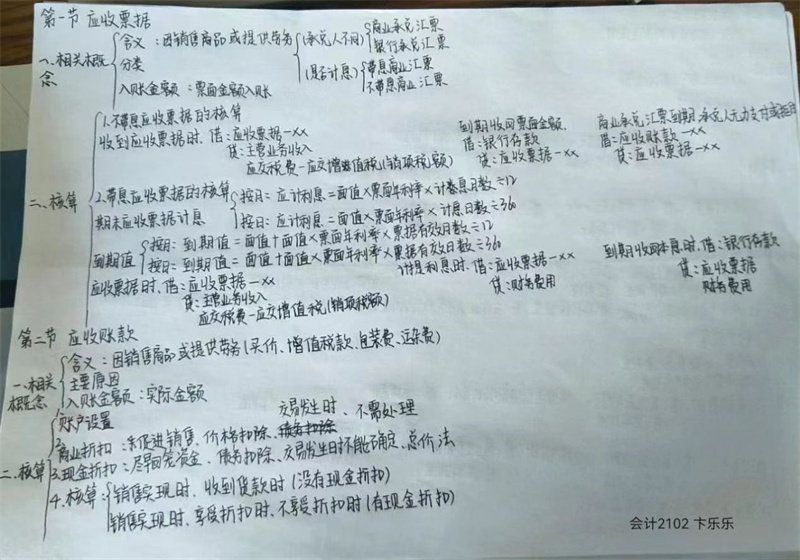 第一节 应收票据
一、相关概念
含义：因销售商品或提供劳务
分类
(承兑人不同) 商业承兑汇票
银行承兑汇票
(是否计息) 带息商业汇票
不带息商业汇票
入账金额：票面金额入账
二、核算
1.不带息应收票据的核算
收到应收票据时、借：应收票据－xx
贷：主营业务收入
应交税费－应交增值税(销项税额)
到期收回票面金额、
借：银行存款
贷：应收票据－xx
商业承兑汇票到期、承兑人无力支付或拒付
借：应收账款－xx
贷：应收票据－xx
2.带息应收票据的核算
期末应收票据计息
按月：应计利息＝面值×票面年利率×计息月数÷12
按日：应计利息＝面值×票面年利率×计息日数÷360
到期值
按月：到期值＝面值＋面值×票面年利率×票据有效月数÷12
按日：到期值＝面值＋面值×票面年利率×票据有效日数÷360
应收票据时、借：应收票据－xx
贷：主营业务收入
应交税费－应交增值税(销项税额)
计提利息时、借：应收票据－xx
贷：财务费用
到期收回本息时、借：银行存款
贷：应收票据
财务费用
第二节 应收账款
一、相关概念
含义：因销售商品或提供劳务(买价、增值税款、包装费、运杂费)
主要原因
入账金额：实际金额
二、核算
1.账户设置
交易发生时、不需处理
2.商业折扣：促进销售、价格扣除、债务扣除
3.现金折扣：尽早回笼资金、债务扣除、交易发生时不能确定、总价法
4.核算：销售实现时、收到货款时(没有现金折扣)
销售实现时、享受折扣时、不享受折扣时(有现金折扣)
会计2102 卞乐乐